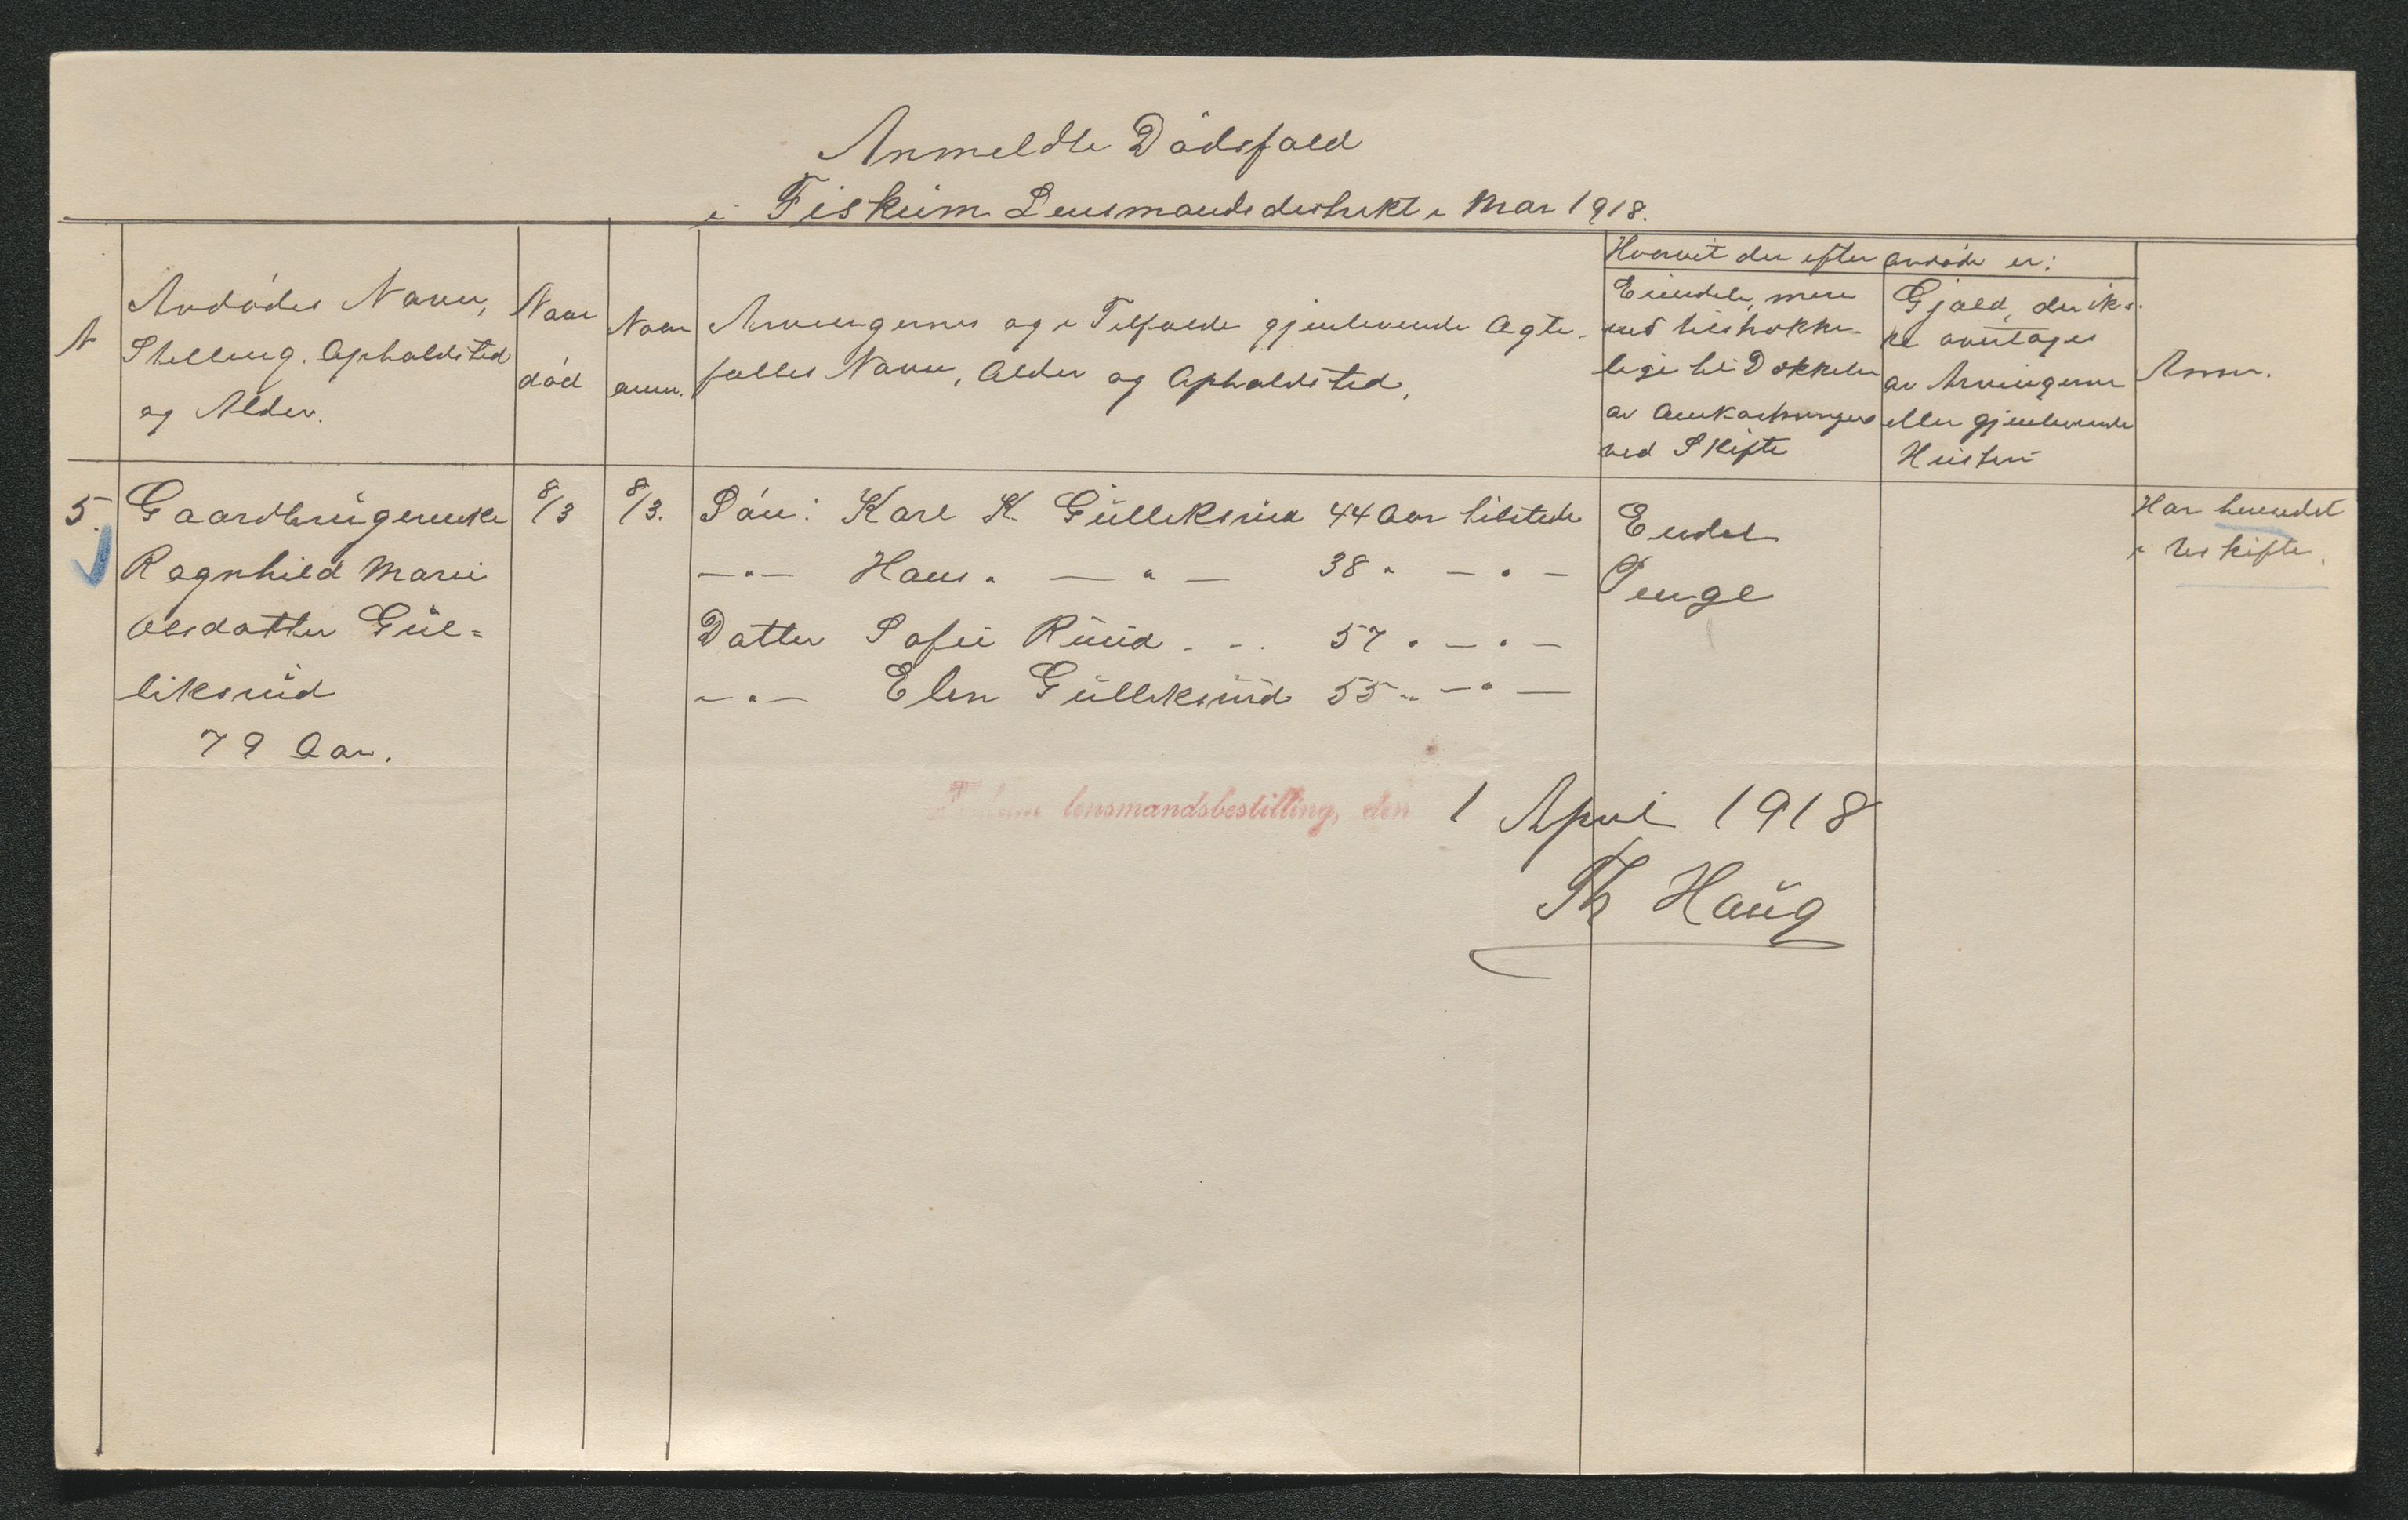 Anmeldte Dødsfald
i Fiskum Lensmandsdistrikt i Mar 1918.
N
Avdødes Navn,
Stilling. Opholdsted
og Alder.
Naar
død
Naar
anm.
Arvingernes og i Tilfælde gjenlevende Ægte-
fælles Navn, Alder og Opholdsted.
Hvorvit der efter avdøde er:
Eiendele, mere
end tilstrække-
lige til Dækkelse
av Omkostninger
ved Skifte
Gjæld, der ik-
ke overtages
av Arvingerne
eller gjenlevende
Hustru
Anm.
5.
Gaardbrugerenke
Ragnhild Marie
Olsdatter Gul=
liksrud
79 Aar.
8/3
8/3.
Søn: Karl K. Gulliksrud 44 Aar tilstede
—"— Hans " — " — 38 " — " —
Datter Sofie Ruud . . . 57 " — " —
—"— Elen Gulliksrud 55 " — " —
Endel
Penge
Har hensiddet
i Uskifte.
lensmandsbestilling, den 1 April 1918
Th Haug